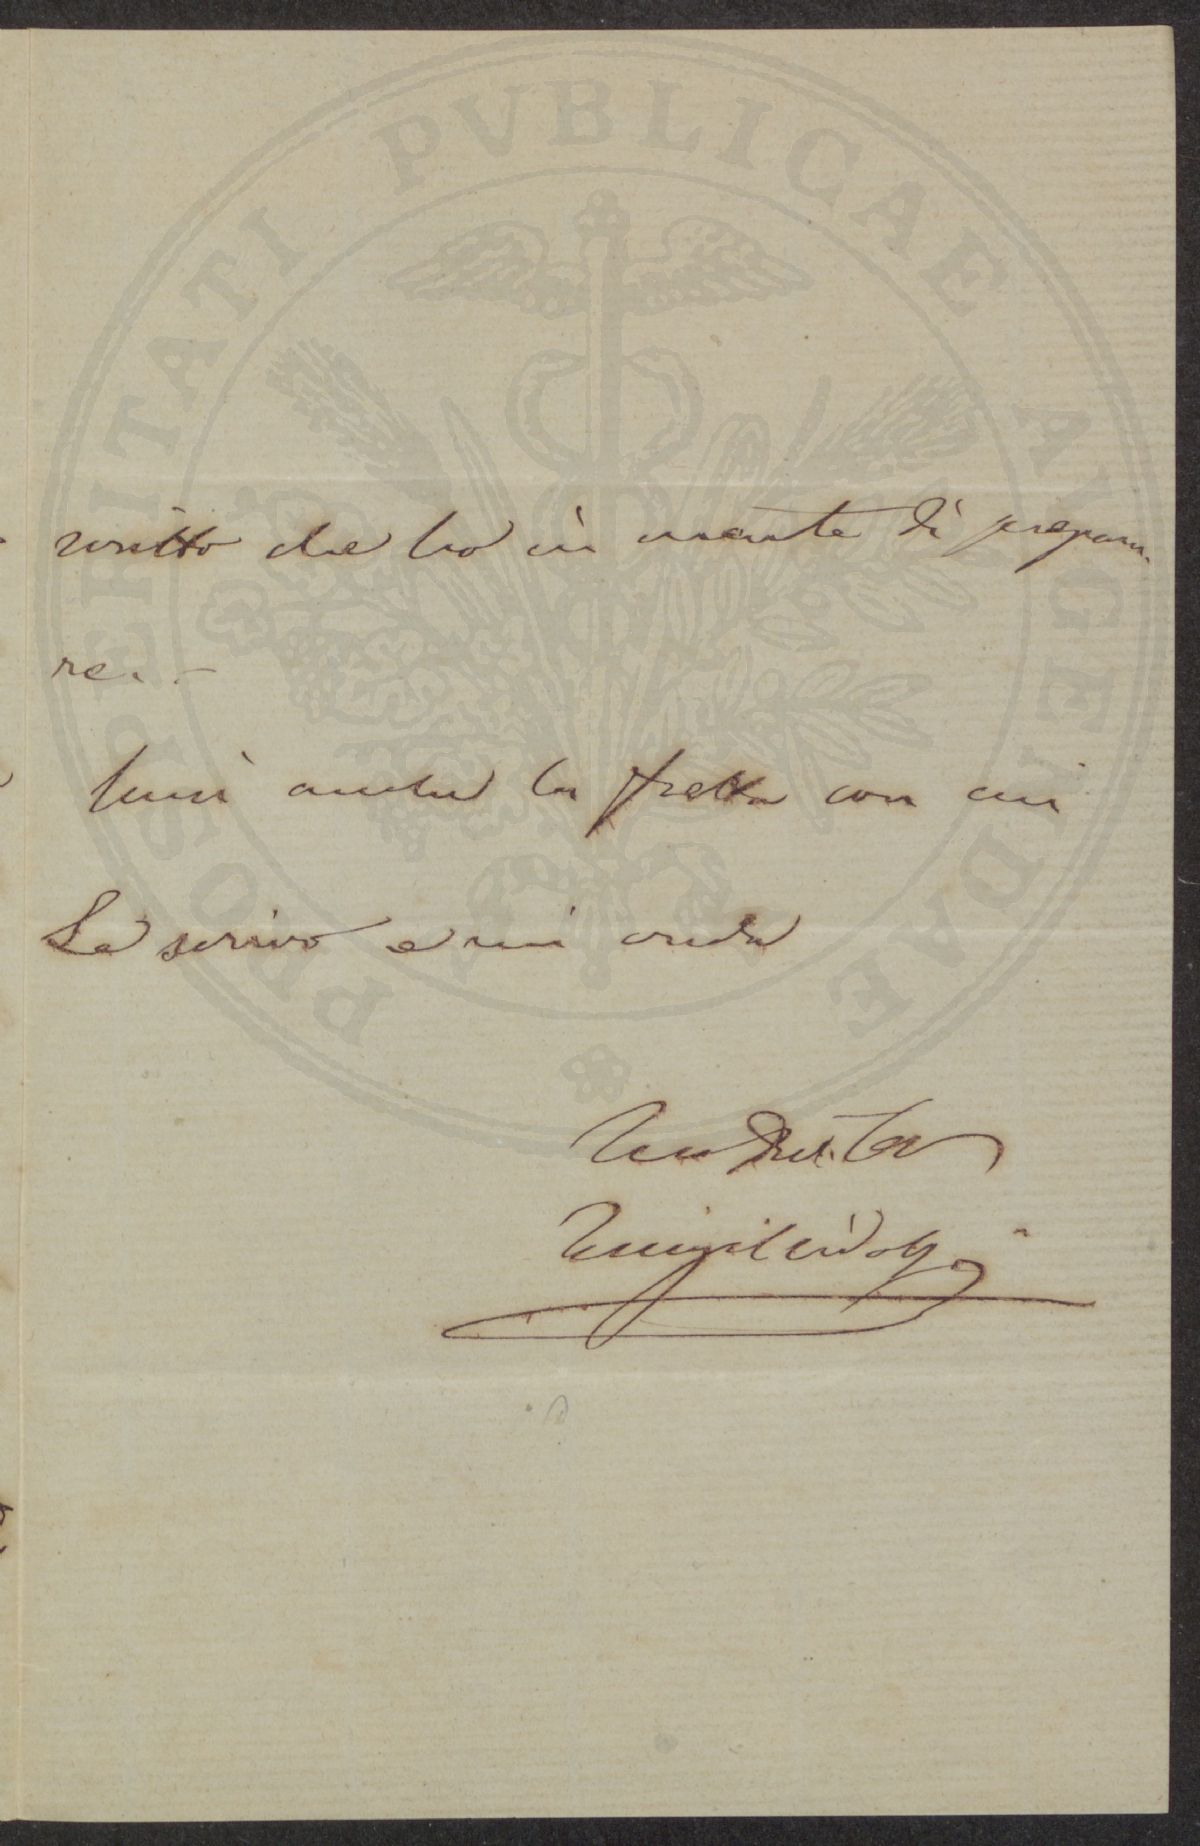 PROSPERITATI PVBLICAE AVGENDAE
scritto che ho in mente di prepara-
re. -
Scusi anche la fretta con cui
Le scrivo e mi creda